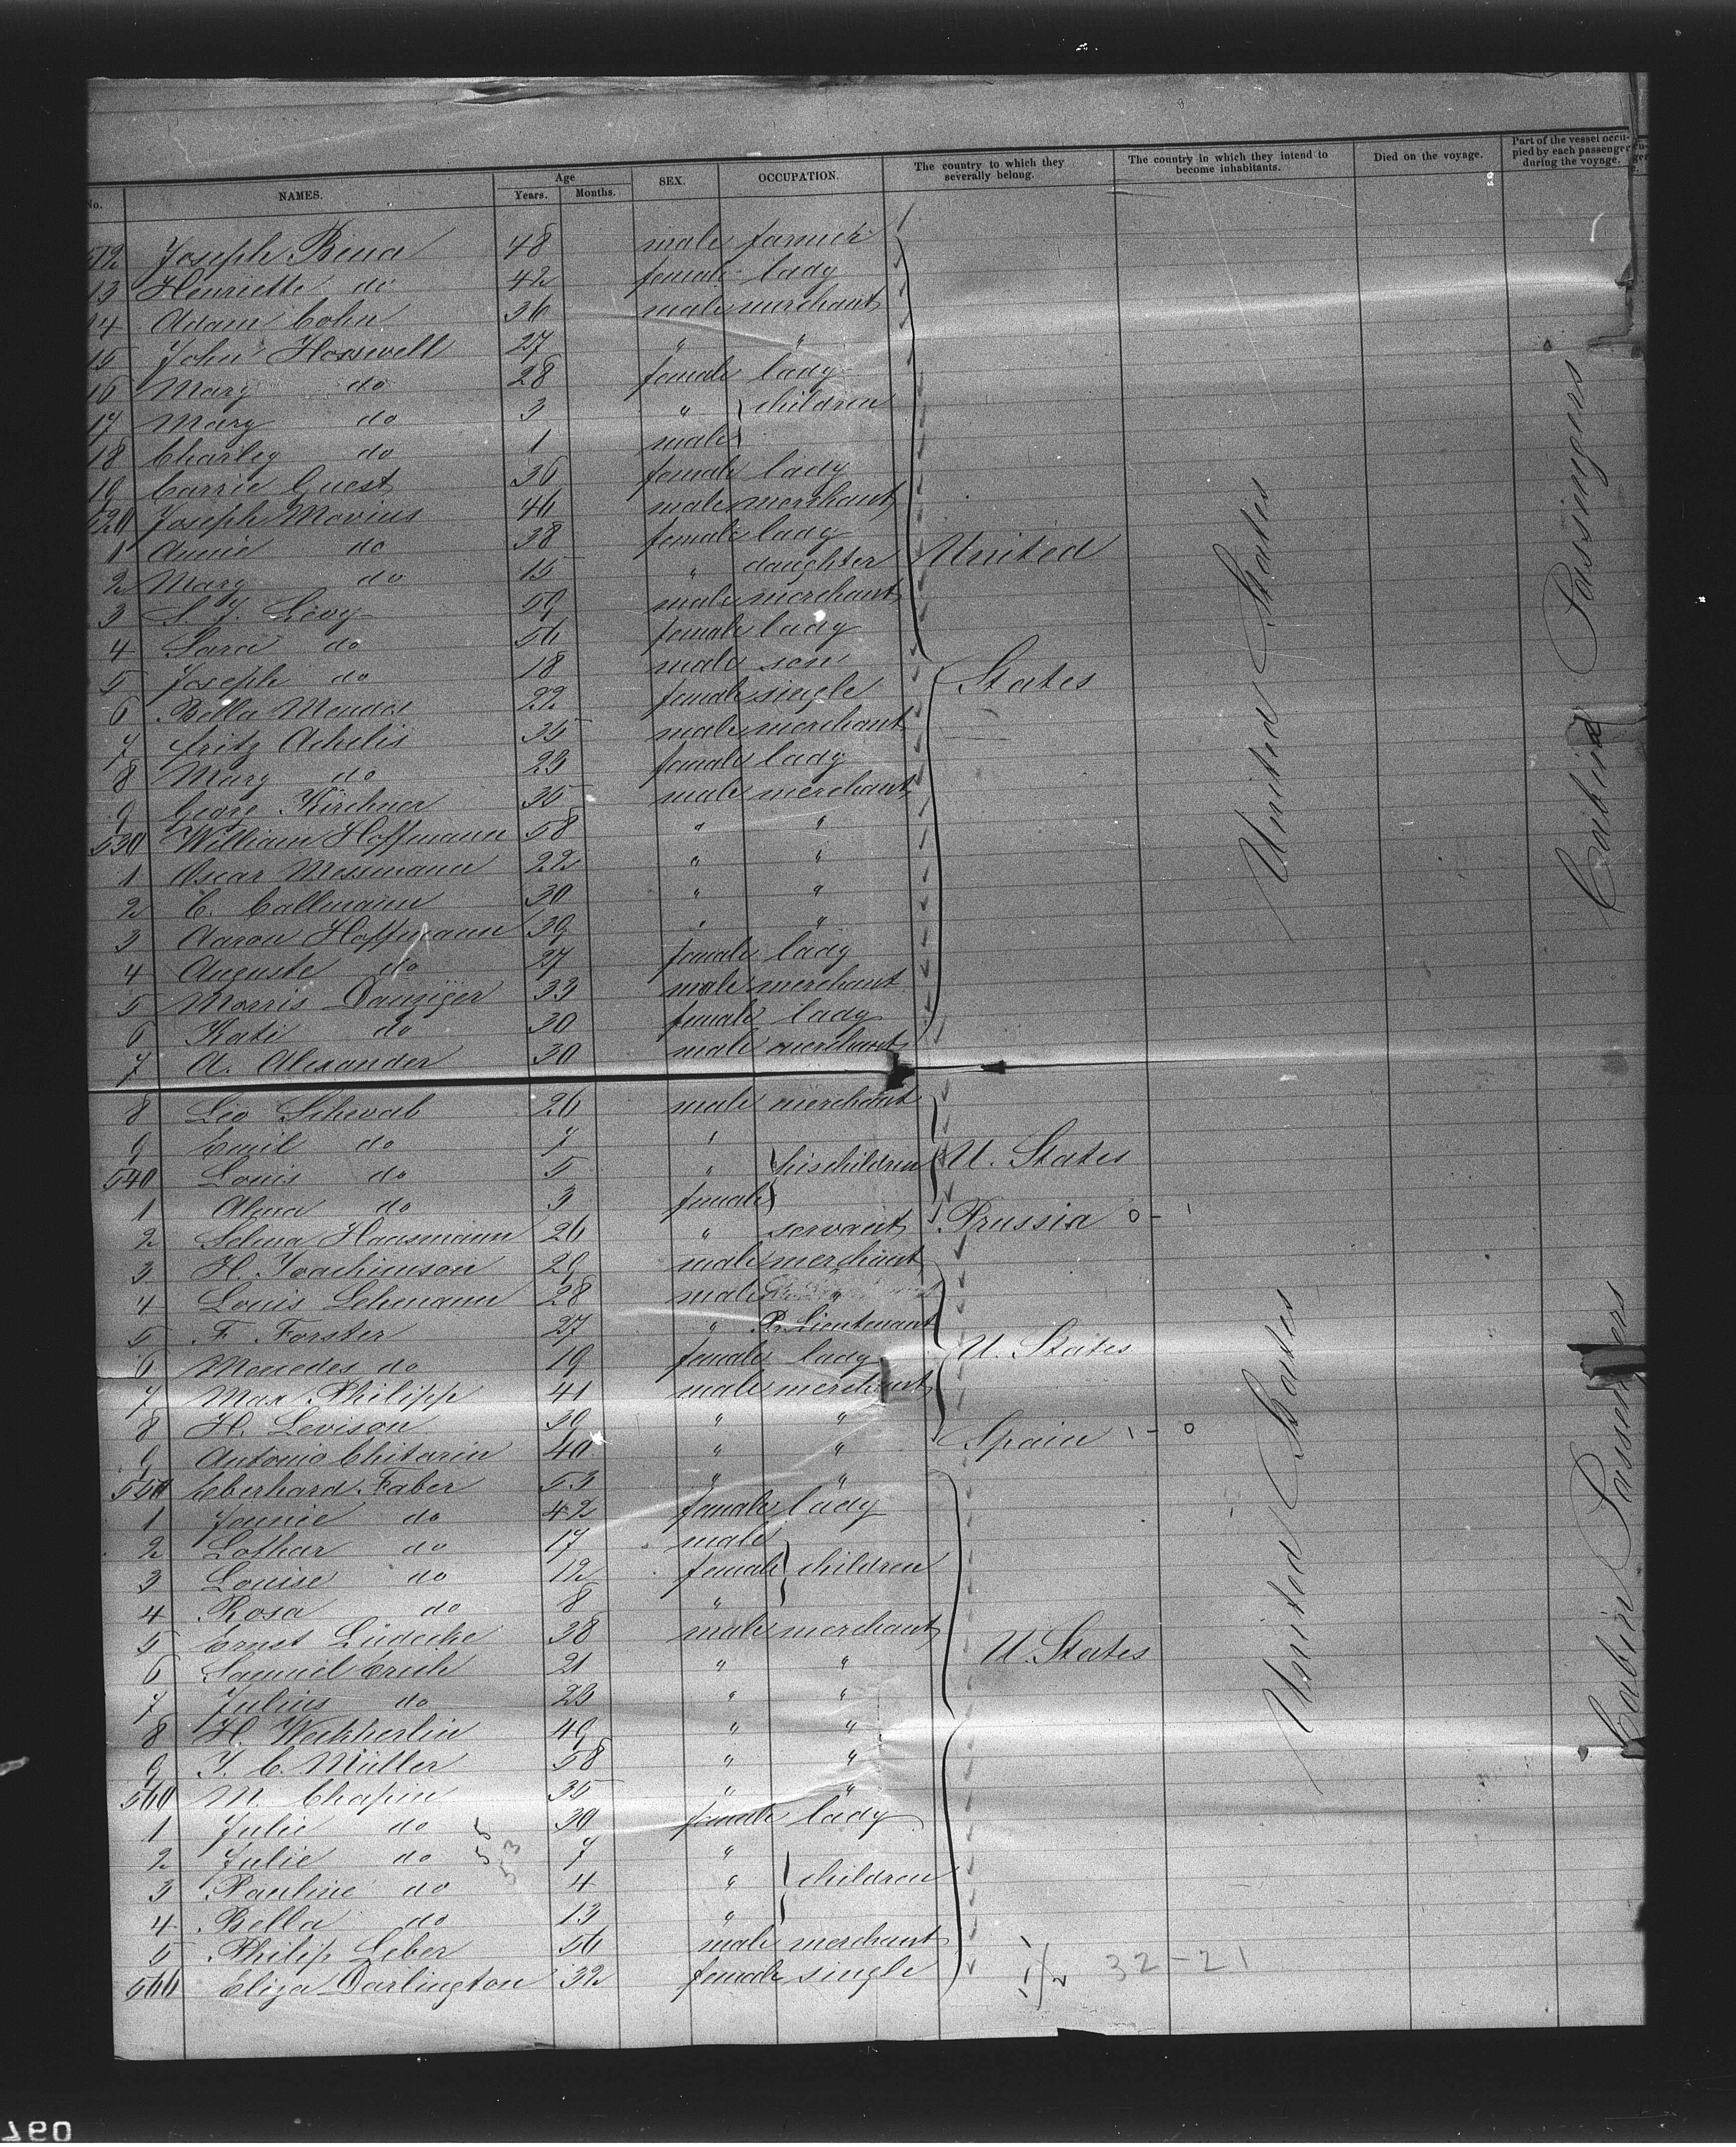 No. NAMES. Age Years. Months. SEX. OCCUPATION. The country to which they severally belong. The country in which they intend to become inhabitants. Died on the voyage. Part of the vessel occupied by each passenger during the voyage.
512 Joseph Bina 48 male farmer
13 Henriette do 42 female lady
14 Adam Cohn 36 male merchant
15 John Horswell 27 " "
16 Mary do 28 female lady
17 Mary do 3 " } children
18 Charley do 1 male }
19 Carrie Guest 36 female lady
520 Joseph Movius 46 male merchant
1 Annie do 38 female lady United
2 Mary do 15 " daughter
3 S. J. Levy 59 male merchant
4 Sara do 56 female lady
5 Joseph do 18 male son States
6 Bella Mendes 22 female single
7 Fritz Achelis 35 male merchant
8 Mary do 23 female lady
9 Georg Kirchner 35 male merchant
530 William Hoffmann 58 " "
1 Oscar Messmann 22 " "
2 C. Callmann 30 " "
3 Aaron Hoffmann 39 " "
4 Auguste do 27 female lady
5 Morris Danziger 33 male merchant
6 Kati do 30 female lady
7 A. Alexander 30 male merchant
United States Cabin Passengers
8 Leo Schwab 26 male merchant
9 Emil do 7 "
540 Louis do 5 " } his children U. States
1 Alma do 3 female }
2 Selma Hausmann 26 " servant Prussia 0 - 1
3 H. Joachimson 29 male merchant
4 Louis Lehmann 28 male "
5 F. Forster 27 " Pr. Lieutenant
6 Mercedes do 19 female lady U. States
7 Max Philipp 41 male merchant
8 H. Levison 30 " "
9 Antonio Chitarin 40 " " Spain 1 - 0
550 Eberhard Faber 53 " "
1 Jennie do 42 female lady
2 Lothar do 17 male
3 Louise do 12 female } children
4 Rosa do 8 "
5 Ernst Lüdecke 38 male merchant
6 Samuel Erich 21 " " U. States
7 Julius do 23 " "
8 H. Weckherlin 49 " "
9 J. C. Müller 58 " "
560 M. Chapin 35 " "
1 Julie do 30 female lady
2 Julie do 7 "
3 Pauline do 4 " } children
4 Bella do 13 "
5 Philip Leber 56 male merchant
566 Eliza Darlington 32 female single
32-21
United States Cabin Passengers
790